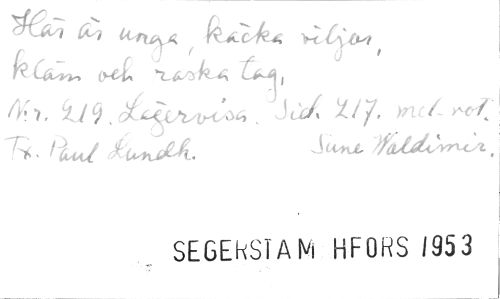 Här är unga, käcka viljor,
kläm och raska tag,
Nr. 219. Lägervisa. Sid. 217. mel. not.
Tx. Paul Lundh. Sune Waldimir.
SEGERSTAM HFORS 1953